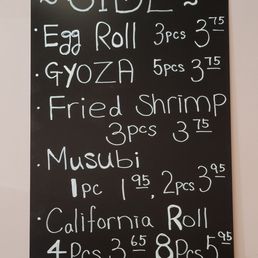 ~ SIDE ~
· Egg Roll 3pcs 3.75
· GYOZA 5pcs 3.75
· Fried Shrimp
3pcs 3.75
· Musubi
1pc 1.95, 2pcs 3.95
· California Roll
4 Pcs 3.65 8Pcs 5.95